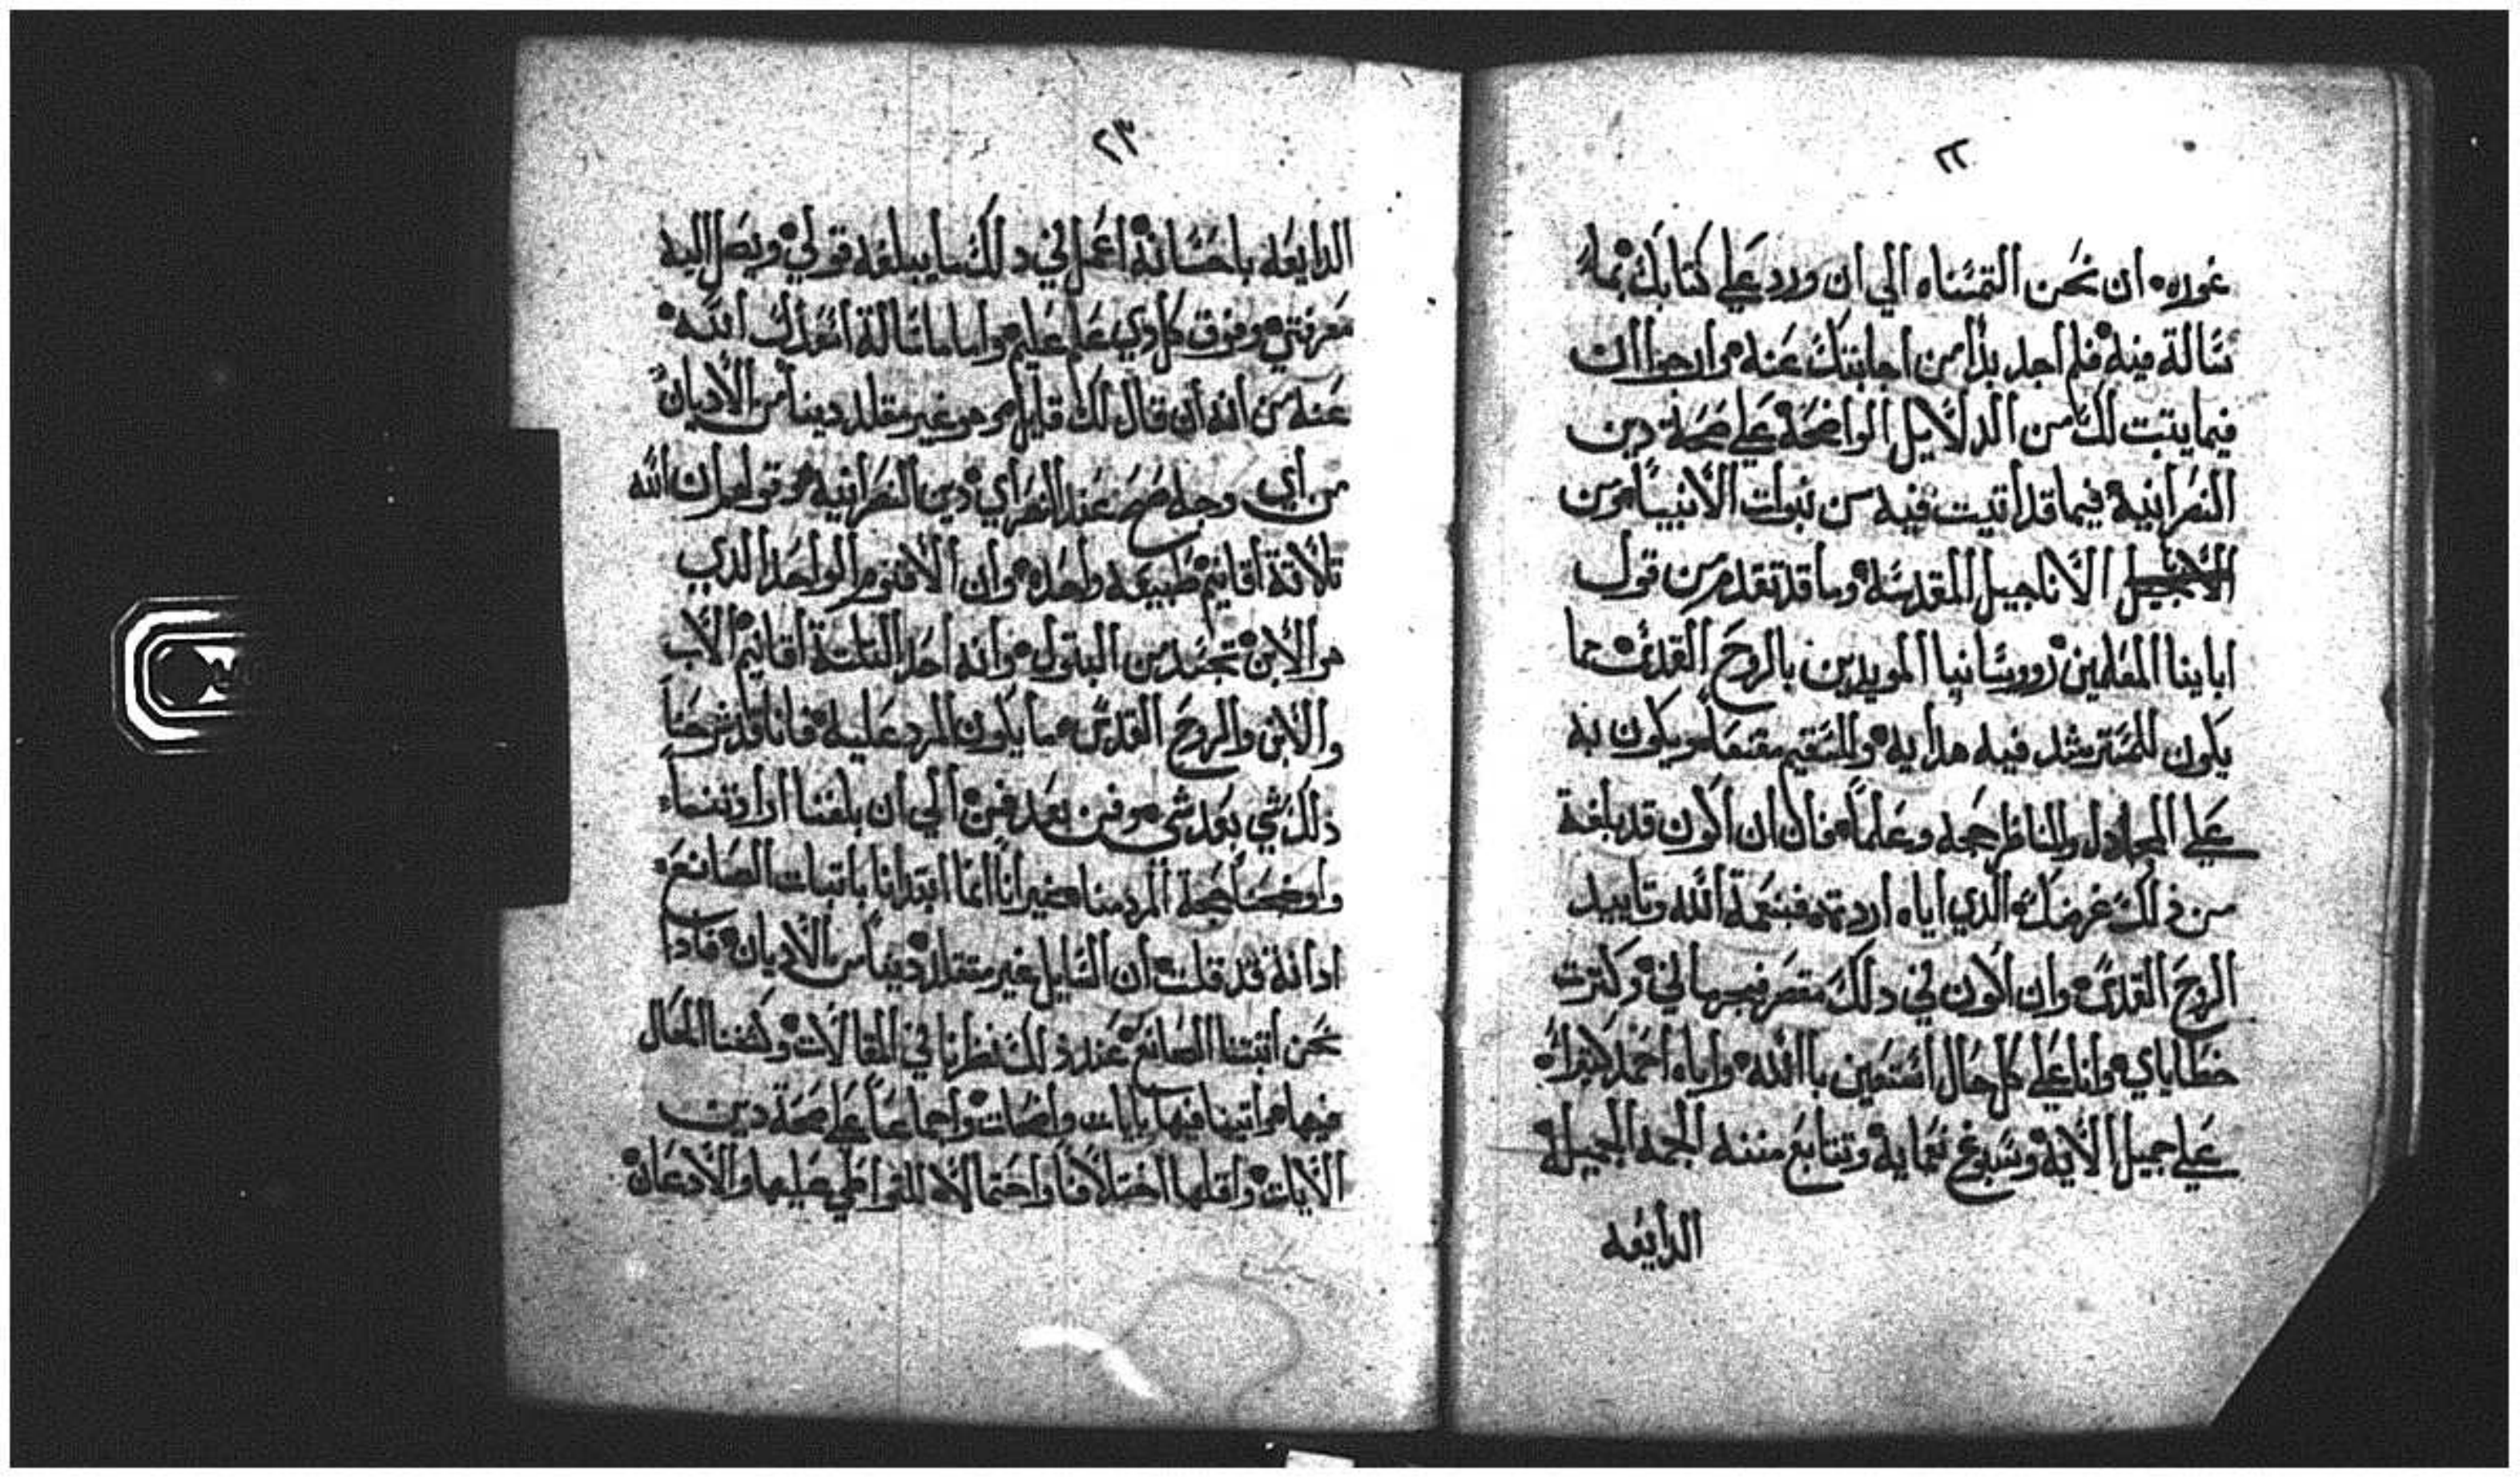 ٢٢
غوره ان نحن التمسناه الي ان ورد علي كتابك بما
سالة فيه فلم اجد بدا من اجابتك عنه وارجوا ان
فيما يتبت لك من الدلايل الواضحة علي صحة دين
النصرانيه فيما قد اتيت فيه من نبوات الانبيا ومن
الاناجيل المقدسه وما قد تقدم من قول
اباينا المعلمين وروسانيا المويدين بالروح القدس ما
يكون للمسترشد فيه هدايه وللسقيم مقنعا ويكون به
علي المجادل والمناظر حجه وعلما فان اكون قد بلغة
من ذلك غرضك الذي اياه اردته فبنعمة الله وتاييد
الروح القدس وان اكون في دلك مقصر فبجهالتي وكترت
خطاياي وانا علي كل حال استعين باالله واياه احمد كتيرا
علي جميل الايه وسبوغ نعمايه وتتابع مننه الجمه الجميله
الدايعه
٢٣
الدايعه باحسانه اعمل في دلك ما يبلغه قولي ويصل اليه
معرفتي وفوق كل دي علم عليم واما ما سالة اعزك الله
عنه من انه ان قال لك قايل وهو غير مقلد دينا من الاديان
من اي وجه صح عند النصراي دين النصرانيه وقولهم ان الله
تلاتة اقانيم طبيعه واحده وان الاقنوم الواحد الدي
هو الابن تجسد من البتول وانه احد التلتة اقانيم الاب
والابن والروح القدس ما يكون الرد عليه فانا قد شرحنا
ذلك شي بعد شي وفن بعد فن الي ان بلغنا
واوضحنا حجة الرد منا غير اننا انما ابتدانا باتبات الصانع
اد انة قد قلت ان السايل غير مقلد دينا من الاديان فادا
نحن اتبتنا الصانع عند ذلك نظرنا في المقالات وكشفنا الحال
فيها واتينا فيها بايات واضحات واجماعا علي صحة دين
الايات واقلها اختلافا واحتمالا للتواطي عليها والادعان